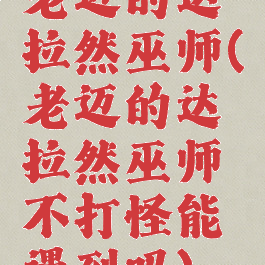 老迈的达
拉然巫师(
老迈的达
拉然巫师
不打怪能
遇到吗)